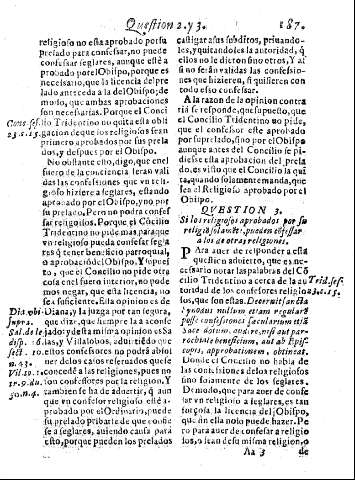 Question 2. y 3.
187.
religioso no esta aprobado por su
prelado para confessar, no puede
confessar seglares, aunque estè a
probado por el Obispo, porque es
necessario, que la licencia del pre
lado anteceda a la del Obispo; de
modo, que ambas aprobaciones
son necessarias. Porque el Conci
lio Tridentino no quita esta obli
gacion de que los religiosos sean
primero aprobados por sus prela
dos, y despues por el Obispo.
No obstante esso, digo, que en el
fuero de la conciencia seran vali
das las confessiones que vn reli-
gioso hiziere a seglares, estando
aprobado por el Obispo, y no por
su prelado. Pero no podra confes
sar religiosos. Porque el Cõcilio
Tridentino no pide mas, para que
vn religioso pueda confessar segla
res q̃ tener beneficio parroquial,
o aprobaciõ del Obispo. Y supues
to, que el Concilio no pide otra
cosa en el fuero interior, no pode
mos negar, que esta licencia, no
sea suficiente. Esta opinion es de
Diana, y la juzga por tan segura,
que dize, que siempre la a aconse
jado y desta misma opinion es Sa
las, y Villalobos, aduirtiẽdo que
estos confessores no podrã absol
uer de los casos referuados que se
concedẽ a las religiones, pues no
son confessores por la religion. Y
tambien se ha de aduertir, q̃ aun
que vn confessor religioso estè a
probado por el Ordinario, puede
su prelado pribarle de que confie
sse a seglares, auiendo causa para
esto, porque pueden los prelados
Conc. ses.
23. c. 15.
Dia. vbi
supra.
Sal. de le
disp. 6.
sect. 10.
n. 43.
Vill. 10. 1.
tr. 9. du.
30. n. 4.
castigar a sus subditos, priuando-
les, y quitandoles la autoridad, q̃
ellos no le dieron sino otros. Y asi
si no seràn validas las confessio-
nes que hizieren, si quisieren con
todo esso confessar.
A la razon de la opinion contra
ria se responde, que supuesto, que
el Concilio Tridentino no pide,
que el confessor este aprobado
por su prelado, sino por el Obispo
aunque antes del Concilio se pi-
diesse esta aprobacion del prela
do, es visto que el Concilio la qui
ta, quando solamente manda, que
sea el Religioso aprobado por el
Obispo.
QVESTION 3.
Si los religiosos aprobados por su
religiõ solamẽte, pueden cõfessar
a los de otras religiones.
Para auer de responder a esta
question aduierto, que es ne-
cessario notar las palabras del Cõ
cilio Tridentino acerca de la au
toridad de los confessores religio
sos, que son estas. Decernit sancta
synodus nullum etiam regularẽ
posse confessiones sæcularium etiã
Sacerdotum, audire, nisi aut par-
rochiale beneficium, aut ab Epis-
copis, approbationem, obtineat.
Donde el Concilio no habla de
las confessiones de los religiosos
sino solamente de los seglares.
De modo, que para auer de confe
ssar vn religioso a seglares, es tan
forçosa, la licencia del Obispo,
que sin ella no lo puede hazer. Pe
ro para auer de confessar a religio
sos, o sean de su misma religion, o
Trid. ses.
23. c. 15.
Aa 3
de